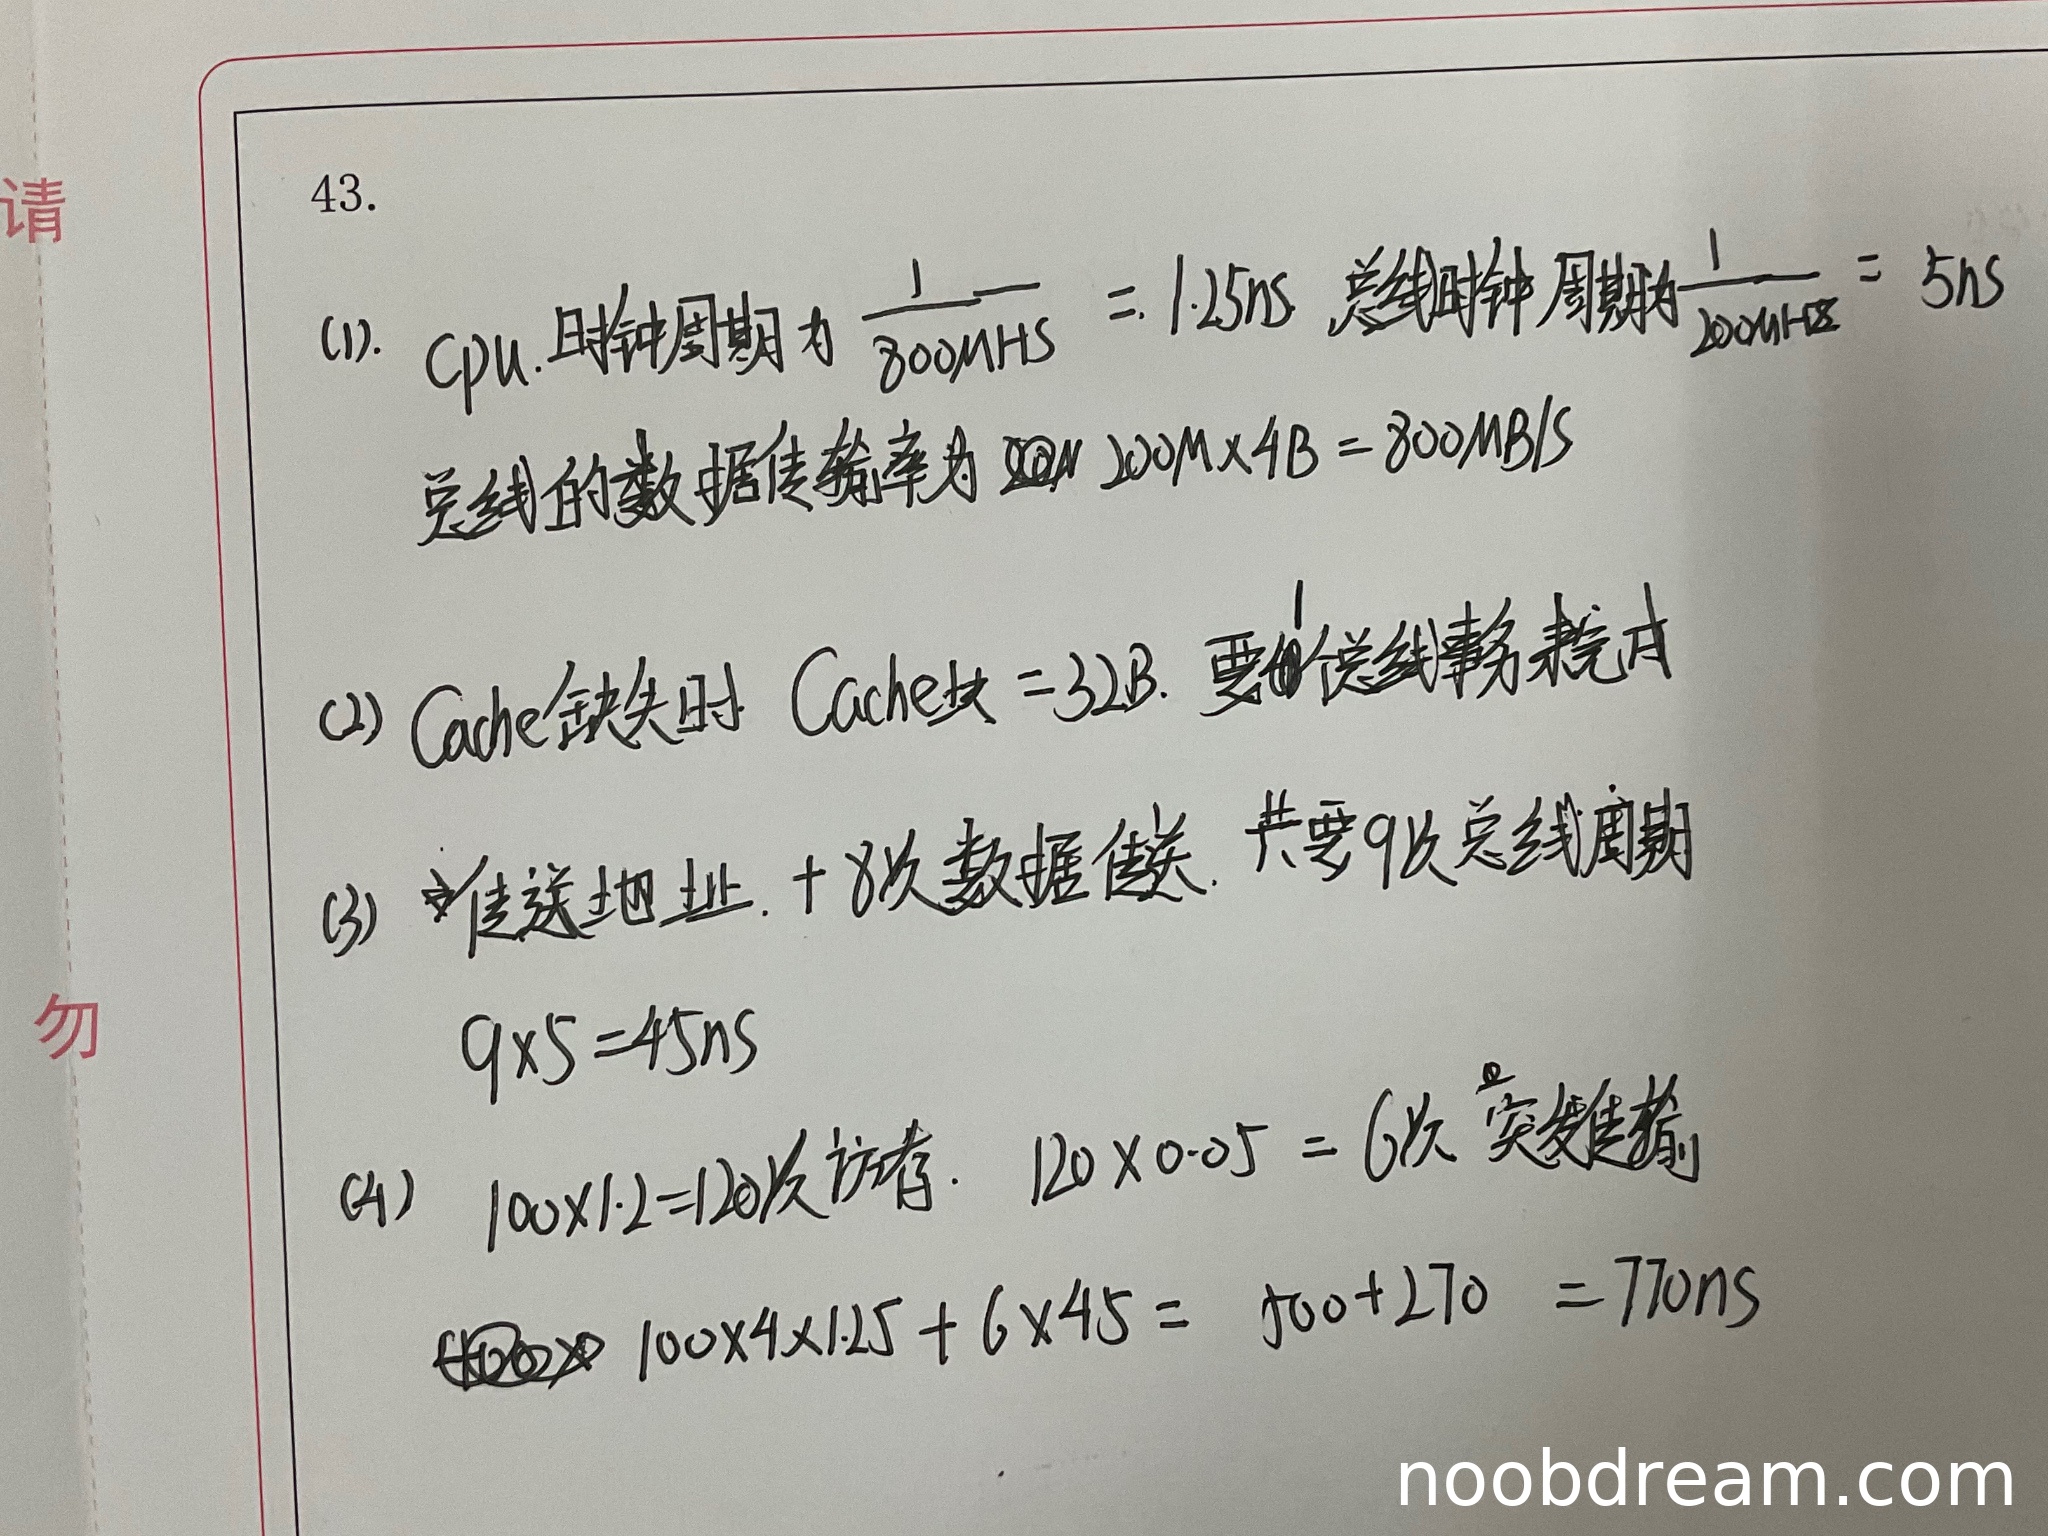 请
勿
43.
(1). CPU.时钟周期为 1/800MHS = 1.25ns 总线时钟周期为 1/200MHZ = 5ns
总线的数据传输率为 200M×4B=800MB/S
(2) Cache缺失时 Cache块=32B. 要1个总线事务来完成
(3) 传送地址.+8次数据传送.共要9次总线周期
9×5=45ns
(4) 100×1.2=120次访存. 120×0.05=6次突发传输
100×4×1.25+6×45= 500+270 =770ns
noobdream.com